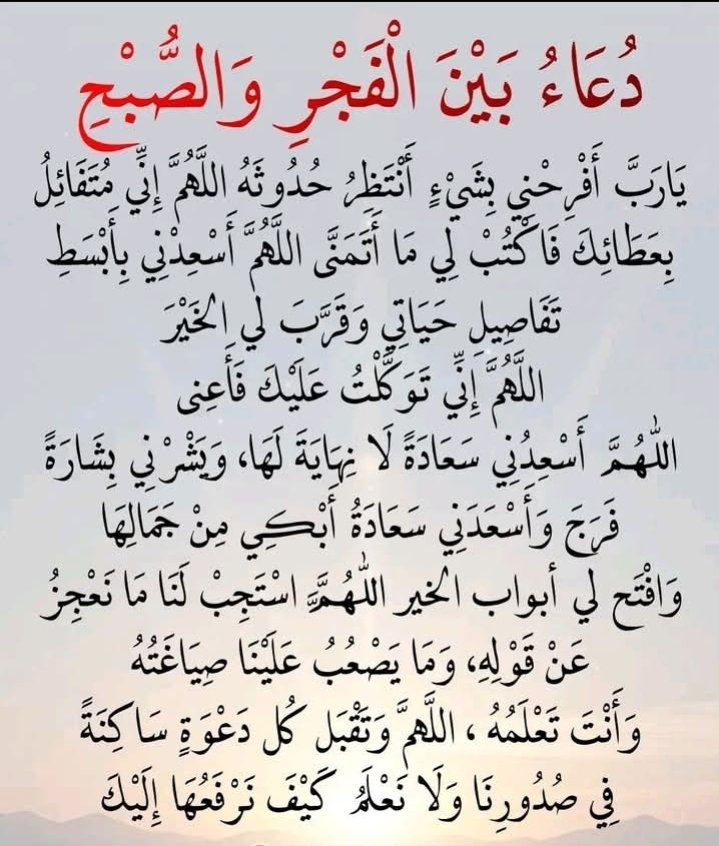 دُعَاءُ بَيْنَ الْفَجْرِ وَالصُّبْحِ
يَارَبَّ أَفْرِحْنِي بِشَيْءٍ أَنْتَظِرُ حُدُوثَهُ اللَّهُمَّ إِنِّي مُتَفَائِلُ
بِعَطَائِكَ فَاكْتُبْ لِي مَا أَتَمَنَّى اللَّهُمَّ أَسْعِدْنِي بِأَبْسَطِ
تَفَاصِيلِ حَيَاتِي وَقَرَّبَ لِي الْخَيْرَ
اللَّهُمَّ إِنِّي تَوَكَّلْتُ عَلَيْكَ فَأَعِنى
اللَّهُمَّ أَسْعِدْنِي سَعَادَةً لَا نِهَايَةَ لَهَا، وَيَشْرْنِي بِشَارَةً
فَرَجَ وَأَسْعَدَنِي سَعَادَةُ أَبْكِي مِنْ جَمَالِهَا
وَافْتَح لي أبواب الخير اللَّهُمَّ اسْتَجِبْ لَنَا مَا نَعْجِزُ
عَنْ قَوْلِهِ، وَمَا يَصْعُبُ عَلَيْنَا صِيَاغَتُهُ
وَأَنْتَ تَعْلَمُهُ ، اللَّهمَّ وَتَقْبَل كُل دَعْوَةٍ سَاكِنَةً
فِي صُدُورِنَا وَلَا نَعْلَمُ كَيْفَ نَرْفَعُهَا إِلَيْكَ